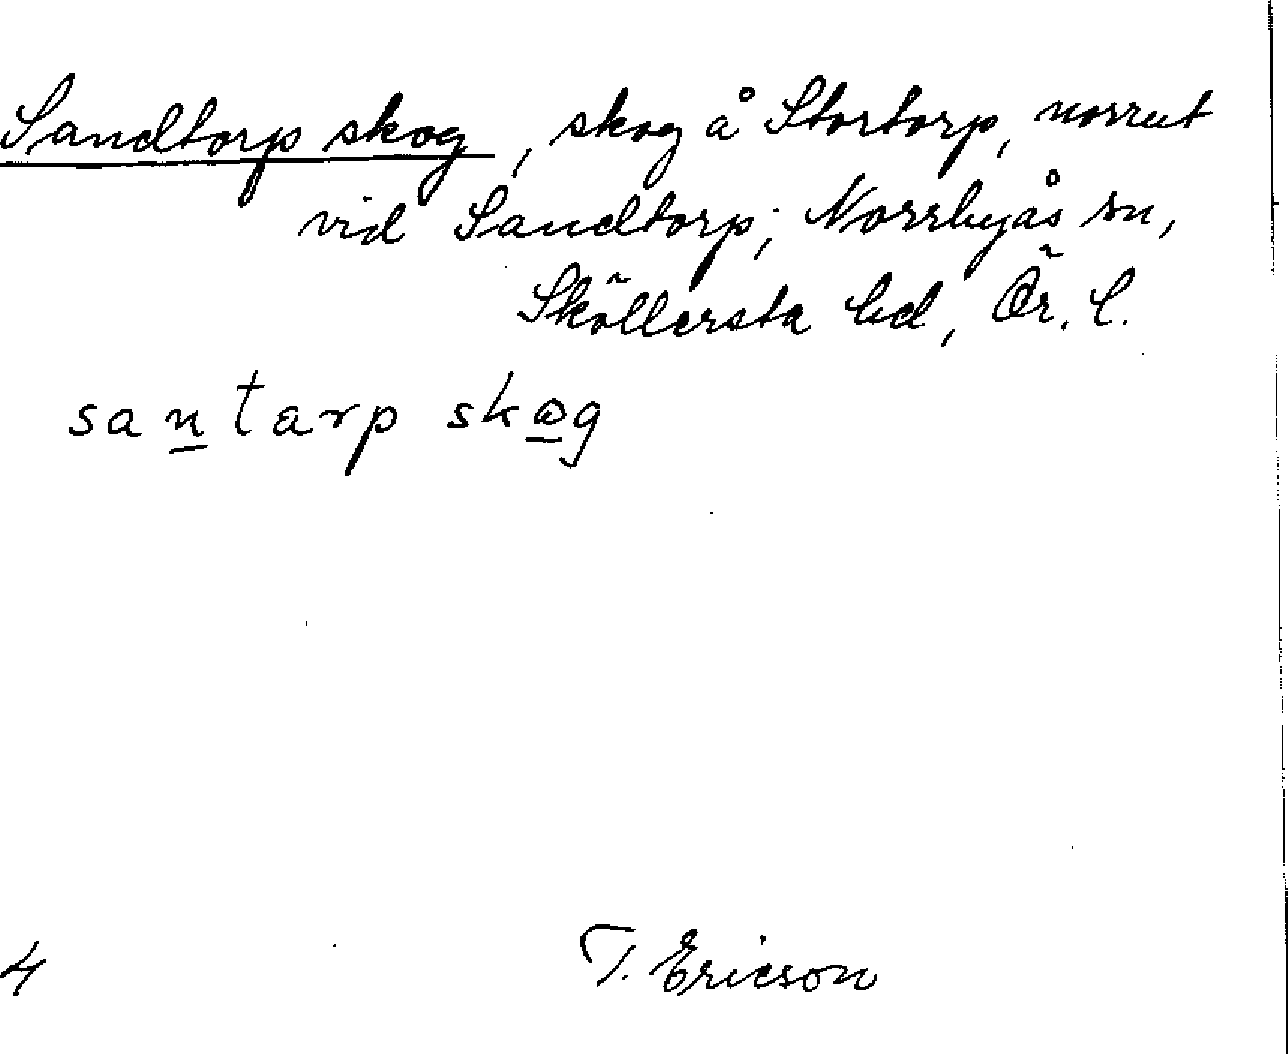 Sandtorp skog, skog å Stortorp, norrut
vid Sandtorp; Norrbyås sn,
Sköllersta hd, Ör. l.
santarp skog
4 T. Ericson